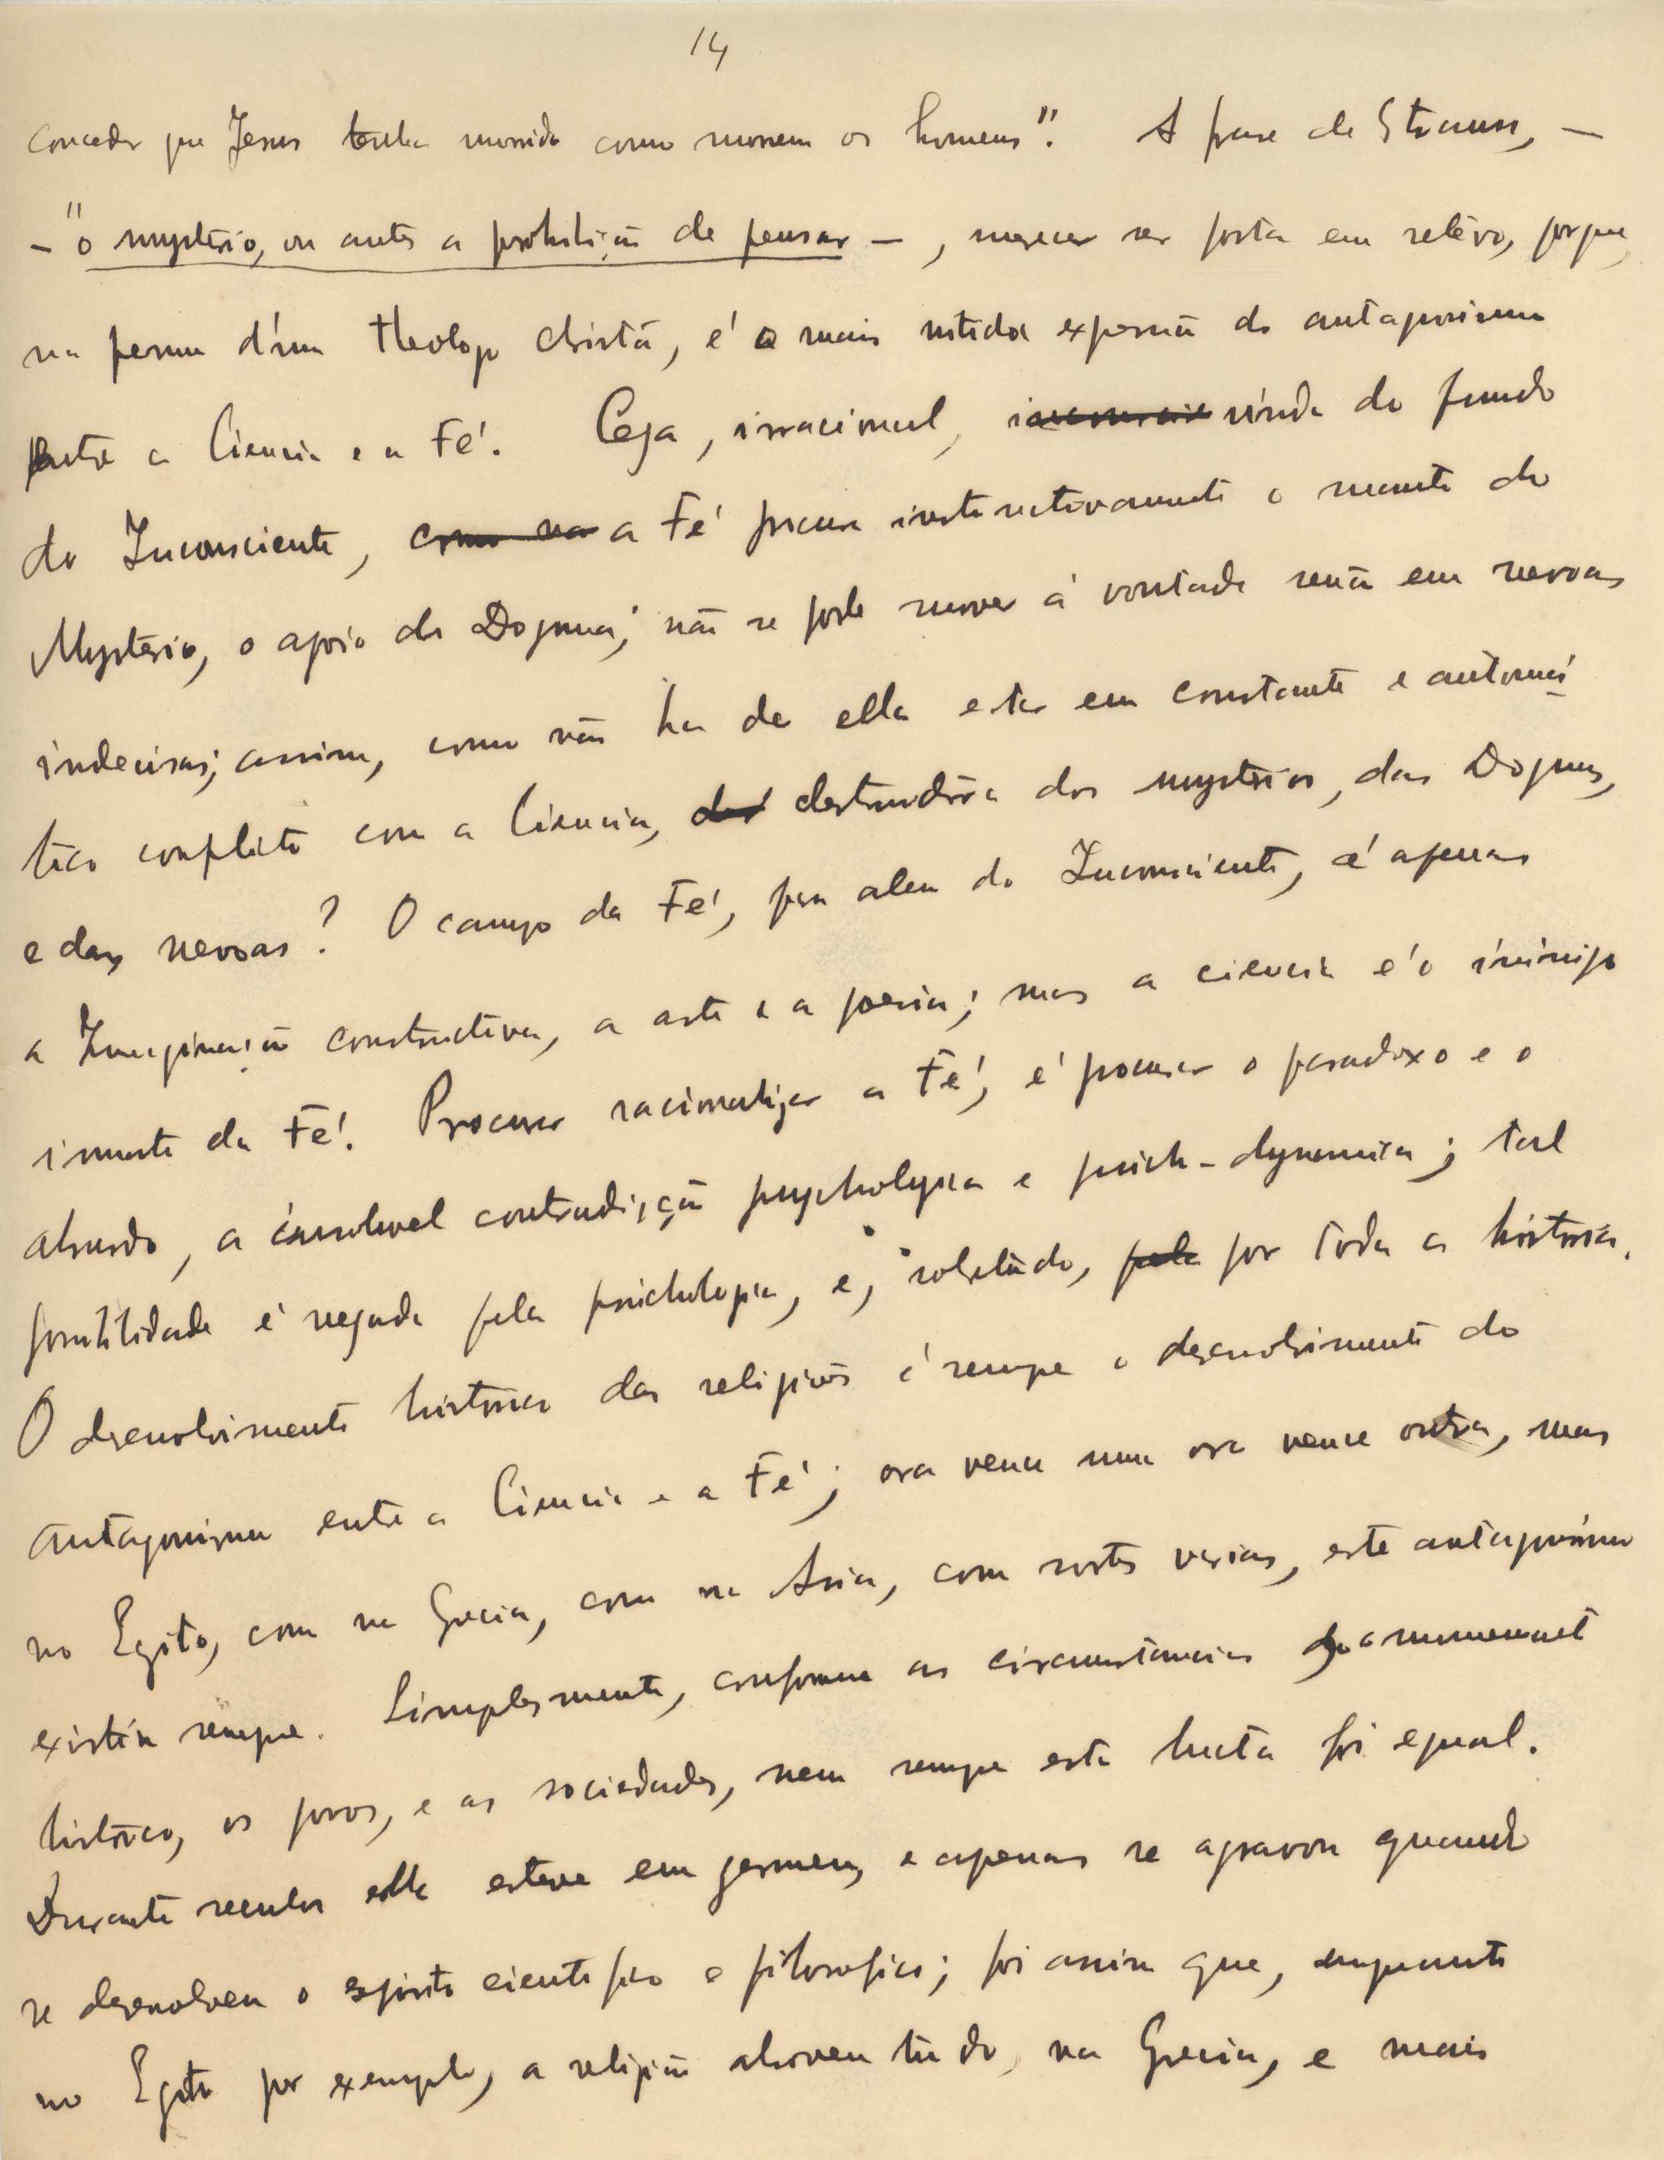 14
conceder que Jesus tenha morrido como morrem os homens". A frase de Strauss, —
— "o mysterio, ou antes a prohibição de pensar —, merece ser posta em relêvo, porque,
na penna d'um theologo christão, é a mais nitida expressão do antagonismo
entre a Ciencia e a Fé. Cega, irracional, vinda do fundo
do Inconsciente, como na a Fé procura instinctivamente o manto do
Mysterio, o apoio do Dogma; não se pode mover á vontade senão em nevoas
indecisas; assim, como não ha de ella estar em constante e automá-
tico conflito com a Ciencia, des destruidôra dos mysterios, dos Dogmas,
e das nevoas? O campo da Fé, para alem do Inconsciente, é apenas
a Imaginação constructiva, a arte e a poesia; mas a ciencia é o inimigo
innato da Fé. Procurar racionalizar a Fé, é procurar o paradoxo e o
absurdo, a insoluvel contradição psychologica e psicho-dynamica; tal
possibilidade é negada pela psichologia, e, sobretudo, pela por toda a historia.
O desenvolvimento historico das religiões é sempre o desenvolvimento do
antagonismo entre a Ciencia e a Fé; ora vence uma ora vence outra, mas
no Egito, como na Grecia, como na Asia, com sortes varias, este antagonismo
existiu sempre. Simplesmente, conforme as circumstancias do momento
historico, os povos, e as sociedades, nem sempre esta lucta foi egual.
Durante seculos ella esteve em germen, e apenas se agravou quando
se desenvolveu o espirito cientifico e filosofico; foi assim que, emquanto
no Egito por exemplo, a religião absorveu tudo, na Grecia, e mais